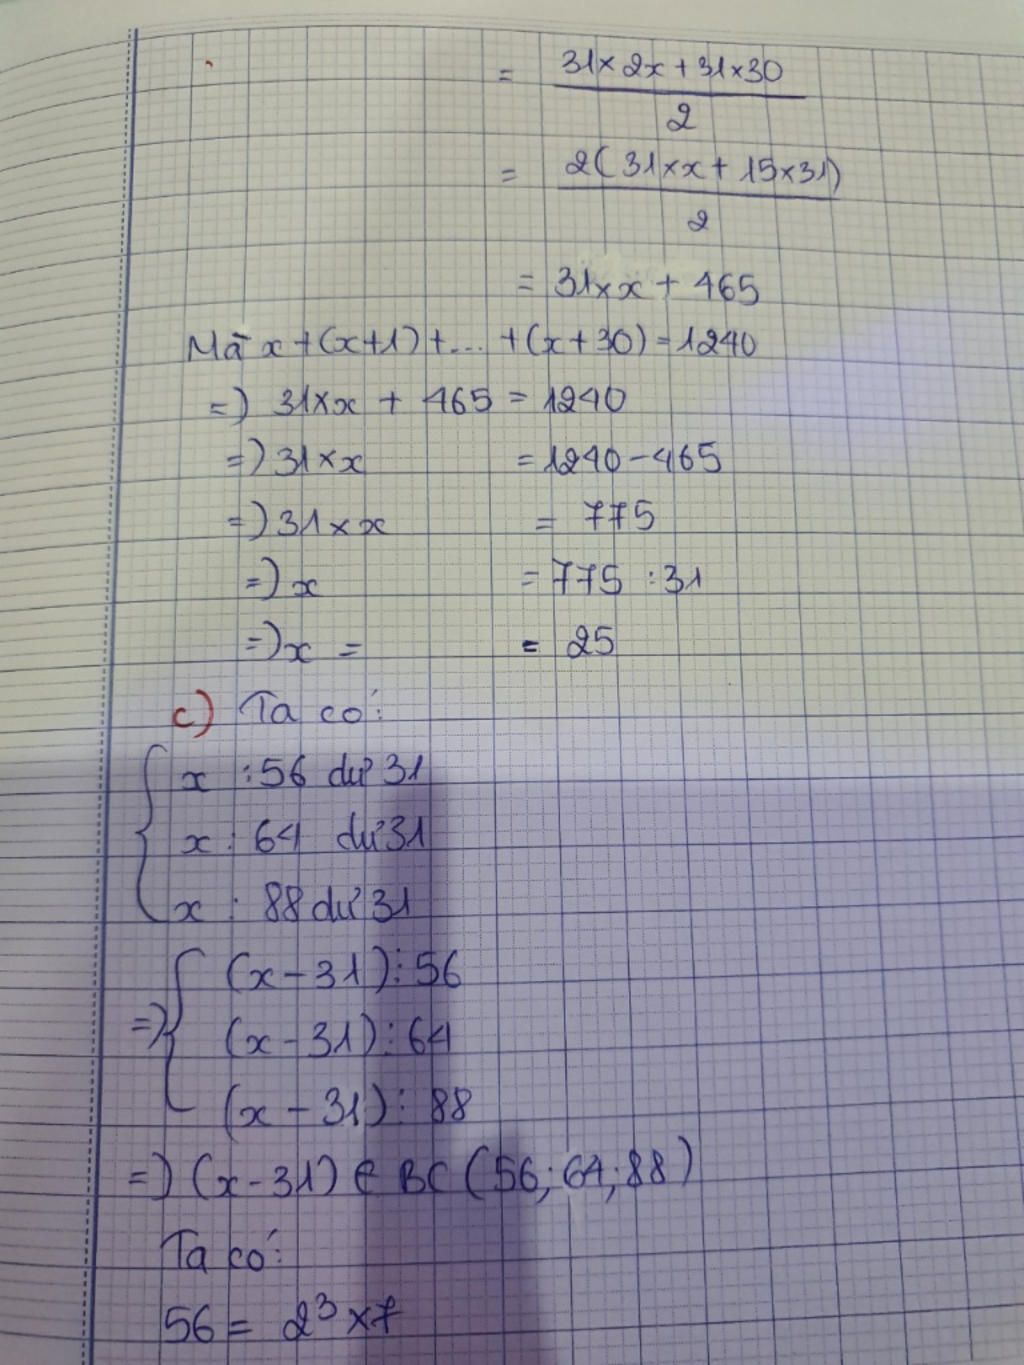 = \frac{31×2x+31×30}{2}
= \frac{2(31×x+15×31)}{2}
= 31×x + 465
Mà x+(x+1)+... +(x+30)=1240
=) 31×x + 465 = 1240
=) 31×x = 1240-465
=) 31×x = 775
=) x = 775 :31
=) x = = 25
c) Ta có:
x :56 dư 31
x : 64 dư 31
x : 88 dư 31
=) (x-31)⋮56
(x-31)⋮64
(x-31)⋮88
=) (x-31) ∈ BC (56;64;88)
Ta có:
56 = 2³×7